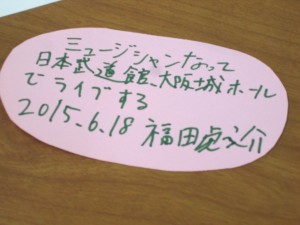 ミュージシャンなって
日本武道館、大阪城ホール
でライブする
2015.6.18 福田虎之介